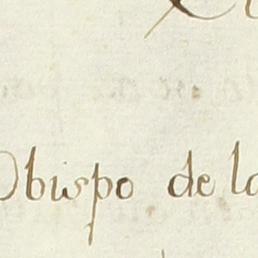 Obispo de la